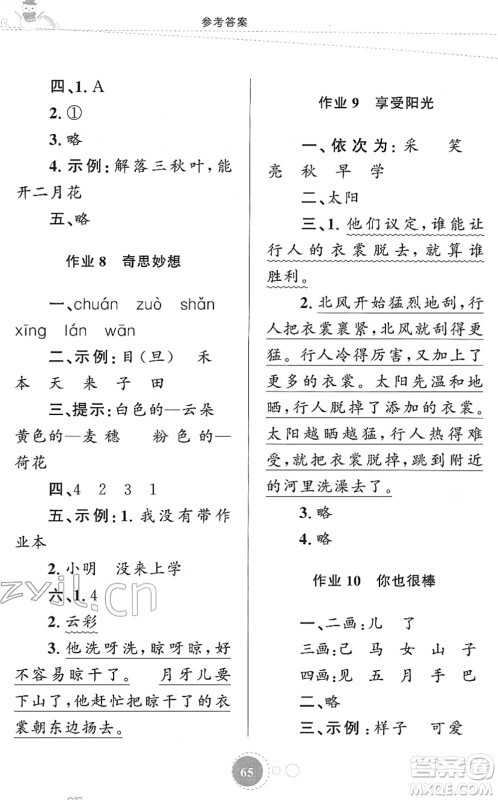 参考答案
四、1. A
2. ①
3. 略
4. 示例：解落三秋叶，能
开二月花
五、略
作业 8 奇思妙想
一、chuán zuò shǎn
xīng lán wān
二、示例：目（旦） 禾
本 天 来 子 田
三、提示：白色的—云朵
黄色的—麦穗 粉色的—
荷花
四、4 2 3 1
五、示例：1. 我没有带作
业本
2. 小明 没来上学
六、1. 4
2. 云彩
3. 他洗呀洗，晾呀晾，好
不容易晾干了。 月牙儿要
下山了，他赶忙把晾干了的衣
裳朝东边扬去。
作业 9 享受阳光
一、依次为：采 笑
亮 秋 早 学
二、太阳
三、1. 他们议定，谁能让
行人的衣裳脱去，就算谁
胜利。
2. 北风开始猛烈地刮，行
人把衣裳裹紧，北风就刮得更
猛。行人冷得厉害，便加上了
更多的衣裳。太阳先温和地
晒，行人脱掉了添加的衣裳。
太阳越晒越猛，行人热得难
受，就把衣裳脱掉，跳到附近
的河里洗澡去了。
3. 略
4. 略
作业 10 你也很棒
一、二画：儿 了
三画：己 马 女 山 子
四画：见 五 月 手 无
二、略
三、示例：样子 可爱
65
zyjl.cn
答案圈
MXQE.COM